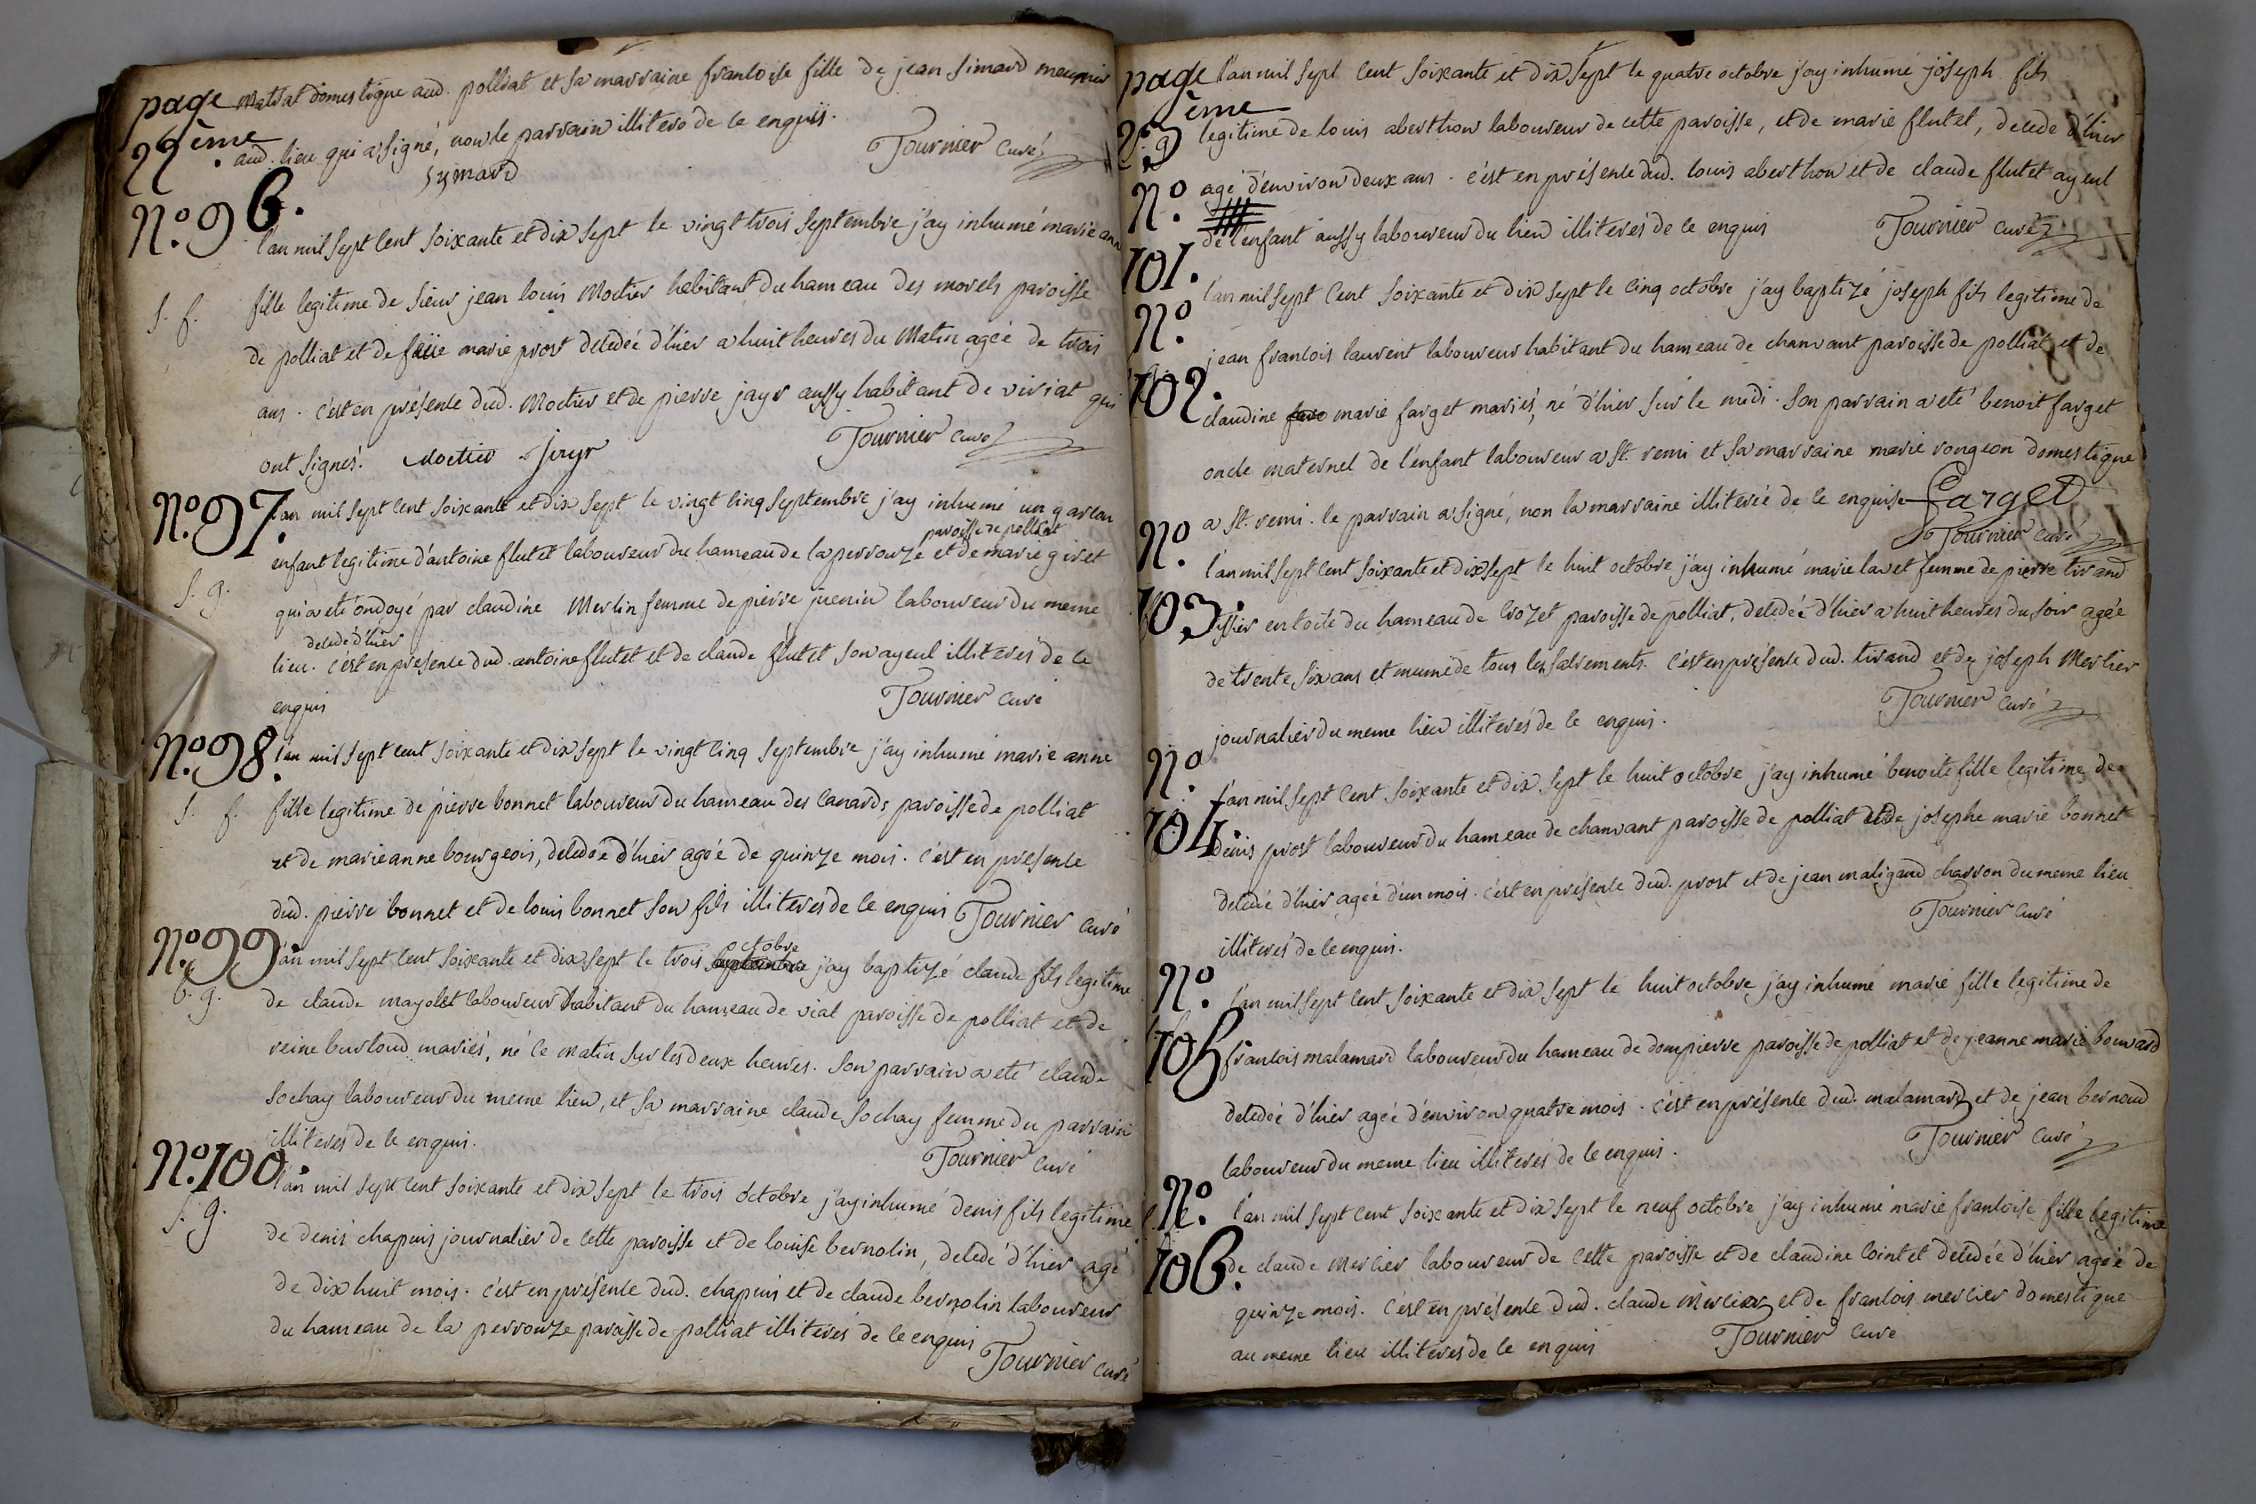 page matrat domestique aud. polliat et sa marraine francoise fille de jean simard meunier
22ème aud. lieu qui a signé, non le parrain illitere de ce enquis.
symard Tournier curé
N.º 96.
l'an mil sept cent soixante et dix sept le vingt trois septembre j'ay inhumé marie ann
S. f. fille legitime de sieur jean louis Moctier habitant du hameau des morels paroisse
de polliat et de marie prost decedée d'hier a huit heures du Matin agée de trois
ans. c'est en présence dud. Moctier et de pierre jayr aussy habitant de viriat qui
ont signés. Moctier Jayr Tournier curé
N.º 97. l'an mil sept cent soixante et dix sept le vingt cinq septembre j'ay inhumé un garcon
paroisse de polliat
enfant legitime d'antoine flutet laboureur du hameau de la perrouze et de marie givet
S. g. qui a eté ondoyé par claudine Merlin femme de pierre juenin laboureur du meme
decedé d'hier
lieu. c'est en presence dud. antoine flutet et de claude flutet son ayeul illiterés de ce
enquis Tournier curé
N.º 98. l'an mil sept cent soixante et dix sept le vingt cinq septembre j'ay inhumé marie anne
S. f. fille legitime de pierre bonnet laboureur du hameau des canards paroisse de polliat
et de marieanne bourgeois, decedée d'hier agée de quinze mois. c'est en presence
dud. pierre bonnet et de louis bonnet son fils illiterés de ce enquis Tournier curé
octobre
N.º 99 l'an mil sept cent soixante et dix sept le trois septembre j'ay baptizé claude fils legitime
b. g. de claude mayolet laboureur habitant du hameau de vial paroisse de polliat et de
reine burtoud mariés, né ce matin sur les deux heures. son parrain a eté claude
sochay laboureur du meme lieu, et sa marraine claude sochay femme du parrain
illiterés de ce enquis. Tournier curé
N.º 100. l'an mil sept cent soixante et dix sept le trois octobre j'ay inhumé denis fils legitime
S. g. de denis chapuis journalier de cette paroisse et de louise bernolin, decedé d'hier agé
de dix huit mois. c'est en présence dud. chapuis et de claude bernolin laboureur
du hameau de la perrouze paroisse de polliat illiterés de ce enquis
Tournier curé
page l'an mil sept cent soixante et dix sept le quatre octobre j'ay inhumé joseph fils
23ème legitime de louis aberthon laboureur de cette paroisse, et de marie flutet, decede d'hier
N.º agé d'environ deux ans. c'est en présence dud. louis aberthon et de claude flutet ayeul
101. de l'enfant aussy laboureur du lieu illiterés de ce enquis Tournier curé
N.º l'an mil sept cent soixante et dix sept le cinq octobre j'ay baptizé joseph fils legitime de
102. jean francois laurent laboureur habitant du hameau de chanvant paroisse de polliat et de
claudine marie farget mariés, né d'hier sur le midi. son parrain a eté benoit farget
oncle maternel de l'enfant laboureur a St. remi et sa marraine marie rongeon domestique
a St. remi. le parrain a signé, non la marraine illiterée de ce enquise Farget
Tournier curé
N.º 103. l'an mil sept cent soixante et dix sept le huit octobre j'ay inhumé marie lavet femme de pierre tirand
tissier en toile du hameau de crozet paroisse de polliat, decedée d'hier a huit heures du soir agée
de trente six ans et munie de tous les sacrements. c'est en présence dud. tirand et de joseph Mercier
journalier du meme lieu illiterés de ce enquis. Tournier curé
N.º 104. l'an mil sept cent soixante et dix sept le huit octobre j'ay inhumé benoite fille legitime de
denis prost laboureur du hameau de chanvant paroisse de polliat et de josephe marie bonnet
decedé d'hier agée d'un mois. c'est en présence dud. prost et de jean maligand charron du meme lieu
illiterés de ce enquis. Tournier curé
N.º 105 l'an mil sept cent soixante et dix sept le huit octobre j'ay inhumé marie fille legitime de
francois malamard laboureur du hameau de dompierre paroisse de polliat et de jeanne marie bouvard
decedée d'hier agée d'environ quatre mois. c'est en présence dud. malamard et de jean bernoud
laboureur du meme lieu illiterés de ce enquis. Tournier curé
N.º 106. l'an mil sept cent soixante et dix sept le neuf octobre j'ay inhumé marie francoise fille legitime
de claude Mercier laboureur de cette paroisse et de claudine cointet decedée d'hier agée de
quinze mois. c'est en présence dud. claude Mercier et de francois mercier domestique
au meme lieu illiterés de ce enquis Tournier curé